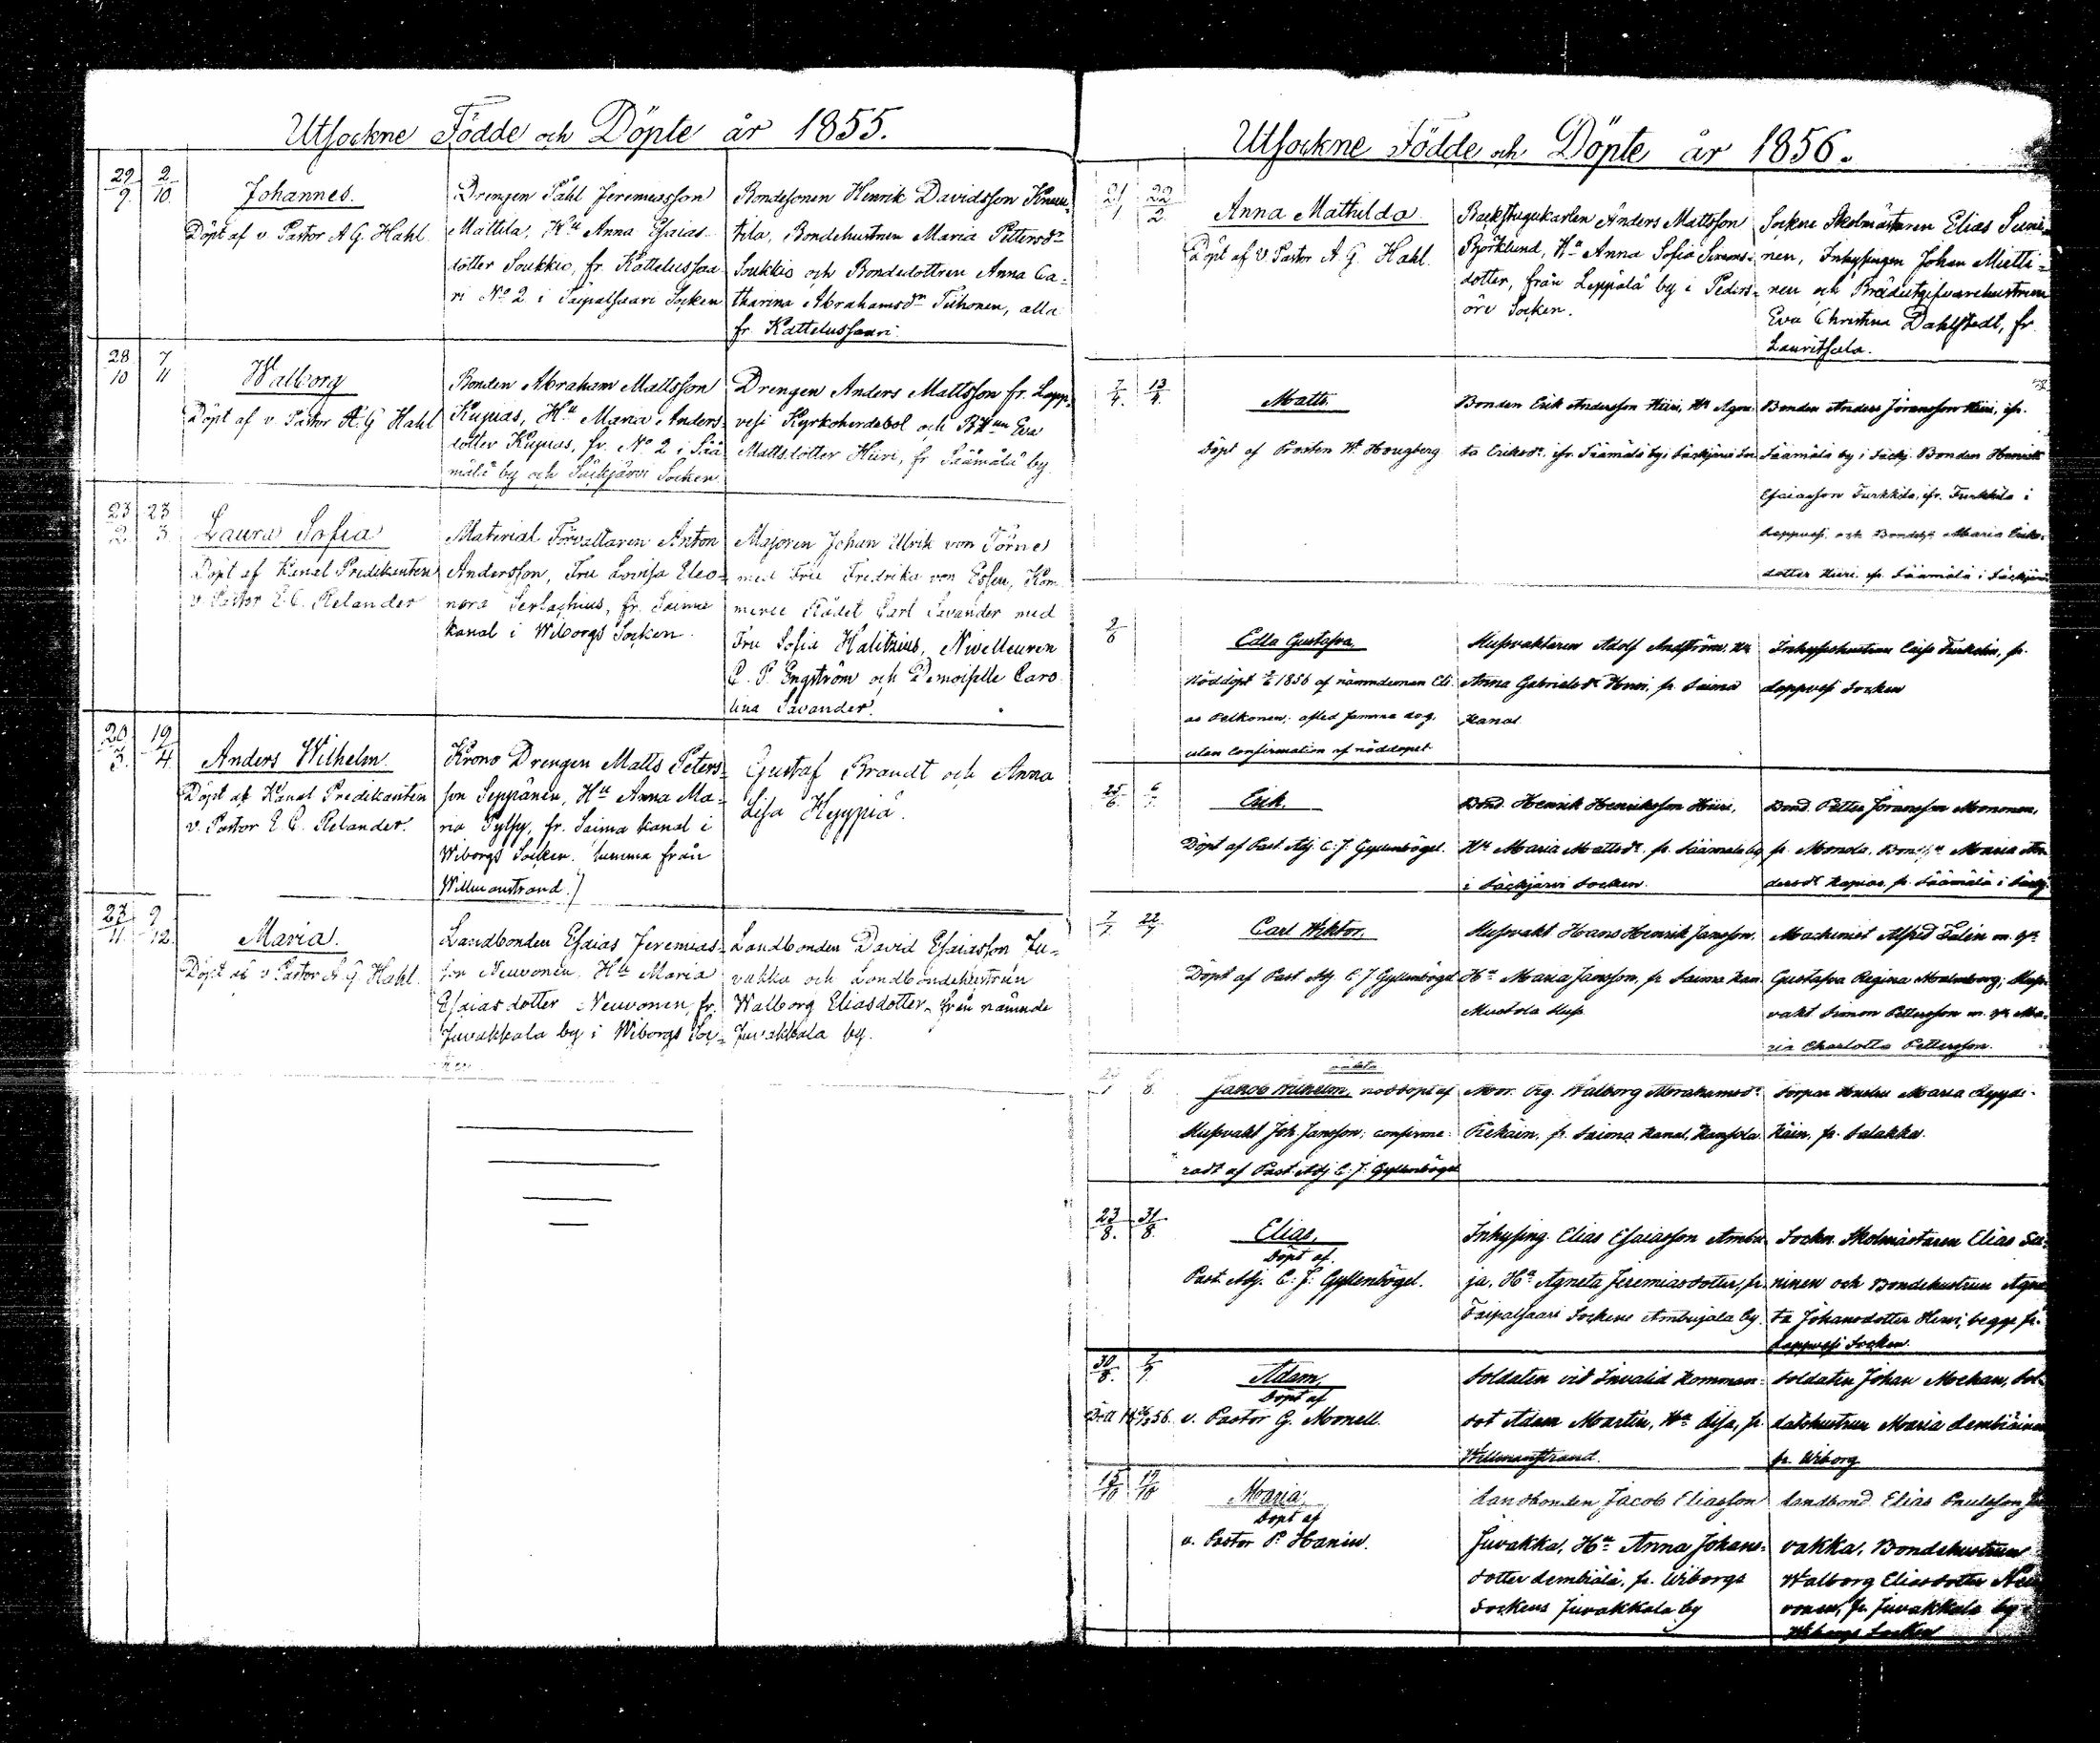 Utsockne Födde och Döpte år 1855.
29/9. 2/10. Johannes.
Döpt af v Pastor A G. Hahl
Drengen Påhl Jeremiasson
Mattila, Hu Anna Esaias
dotter Soukkio, fr. Kattelussaa
ri No 2 i Taipalsaari Socken
Bondesonen Henrik Davidsson
tila, Bondehustrun Maria Pettersdr
Soukkio och Bondedottren Anna Ca=
tharina Abrahamsdr Tiihonen, alla
fr. Kattelussaari.
28/10 7/11 Walborg
Döpt af v. Pastor A. G Hahl
Bonden Abraham Mattsson
Kupias, Hu Maria Anders
dotter Kupias, fr. No 2 i Sää
mälä by och Säckjärvi Socken
Drengen Anders Mattsson fr. Lapp=
vesi Kyrkoherdebol och BHun Eva
Mattsdotter Hüri, fr Säämälä by.
23/2. 23/3. Laura Sofia
Döpt af Kanal Predikanten
v. Pastor E. C. Relander
Material Förvaltaren Anton
Andersson, Fru Lovisa Eleo=
nora Serlachius, fr. Saima
kanal i Wiborgs Socken.
Majoren Johan Ulrik von Törne
med Fru Fredrika von Essen, Kom
merce Rådet Carl Savander med
Fru Sofia Halitzius, Nivelleuren
C. P. Engström och Demoiselle Caro
lina Savander.
20/3. 19/4. Anders Wilhelm
Döpt af Kanal Predikanten
v. Pastor E. C. Relander.
Krono Drengen Matts Peters=
son Seppänen, Hu Anna Ma=
ria Pylsy, fr. Saima kanal i
Wiborgs Socken. (umma från
Willmanstrand.)
Gustaf Brandt och Anna
Lisa Hyypiä.
27/11. 9/12. Maria.
Döpt af v Pastor A G. Hahl.
Landbonden Esaias Jeremias=
son Neuvonen, Hu Maria
Esaiasdotter Neuvonen, fr.
Juvakkala by i Wiborgs Soc=
ken
Landbonden David Esaiasson Ju=
vakka och Landbondehustrun
Walborg Eliasdotter, från nämnde
Juvakkala by.
Utsockne Födde och Döpte år 1856.
21/1 22/2 Anna Mathilda
Döpt af v Pastor A. G. Hahl.
Backstugukarlen Anders Mattsson
Björklund, Hu Anna Sofia Simons=
dotter, från Leppälä by i Peders=
öre Socken.
Sockne Skolmästaren Elias Suni=
nen, Inhysingen Johan Mietti=
nen och Brödutgifvarehustrun
Eva Christina Dahlstedt, fr.
Lauritsala.
7/4. 13/4. Matts.
Döpt af Prosten W. Hougberg
Bonden Erik Andersson Hüri, Hu Agne
ta Eriksdr. ifr. Säämälä by i Säckjärvi Soc
Bonden Anders Göransson Hüri, ifr.
Säämälä by i Säckj. Bonden Henrik
Esaiasson Turkkila, ifr. Turkkila i
Lappvesi, och Maria Eriks=
dotter Hüri fr. Säämälä i Säckjärvi
2/6 Edla Gustafva,
Nöddöpt 2/6 1856 af nämndeman Eli
as Pelkonen, afled samma dag,
utan confirmation af nöddopet
Slussvaktaren Adolf Andström, Hu
Anna Gabrielsdr, fr. Saima
Kanal
Inhyseshustrun Caisa Turkulin, fr.
Lappvesi Socken
25/6. 6/7. Erik.
Döpt af Past. Adj. C. J. Gyllenbögel.
Bond. Henrik Henriksson Hüri,
Hu Maria Mattsdr. fr. Säämälä by
i Säckjärvi Socken.
Bond. Petter Göransson Mononen,
fr. Monola, Maria An
dersdr Kapias, fr. Säämälä i Säckj.
7/7. 22/7 Carl Wiktor,
Döpt af Past Adj C. J Gyllenbögel
Slussvakt Hans Henrik Jansson,
Hu Maria Jansson, fr Saima kan.
Mustola Sluss.
Machinist Alfred Talin m. Hu
Gustafva Regina Malmberg; Sluss
vakt Simon Pettersson m. Hu Ma=
ria Charlotta Pettersson.
oäkta
Jakob Wilhelm, nöddöpt af
Slussvakt Joh. Jansson; confirme
radt af Past. Adj C. J. Gyllenbögel
Mor. Pig. Walborg Abrahamsdr
fr. Saima Kanal, Kansola
Torpar Hustru Maria
fr. Salakka.
23/8. 31/8. Elias,
Döpt af
Past. Adj. C. J. Gyllenbögel.
Inhysing. Elias Esaiasson Ambu
ja, Hu Agneta Jeremiasdotter, fr.
Taipalsaari Sockens Ambujala by.
Sockn. Skolmästaren Elias Su=
ninen och Bondehustrun Agne
ta Johansdotter Hüri, begge fr.
Lappvesi Socken.
30/8. 7/9. Adam,
Döpt af
v. Pastor G. Monell.
Soldaten vid Invalid Komman=
dot Adam Martin, Hu Lisa, fr.
Willmanstrand.
Soldaten Johan Mechan, Sol
datshustrun Maria Lembiäinen
fr. Wiborg
15/10 19/10 Maria,
Döpt af
v. Pastor P. Hanin.
Landbonden Jacob Eliasson
Juvakka, Hu Anna Johans=
dotter Lembiälä, fr. Wiborgs
Sockens Juvakkala by
Landbond. Elias Paulsson Ju
vakka, Bondehustrun
Walborg Eliasdotter Neu
vonen, fr. Juvakkala by
Wiborgs Socken